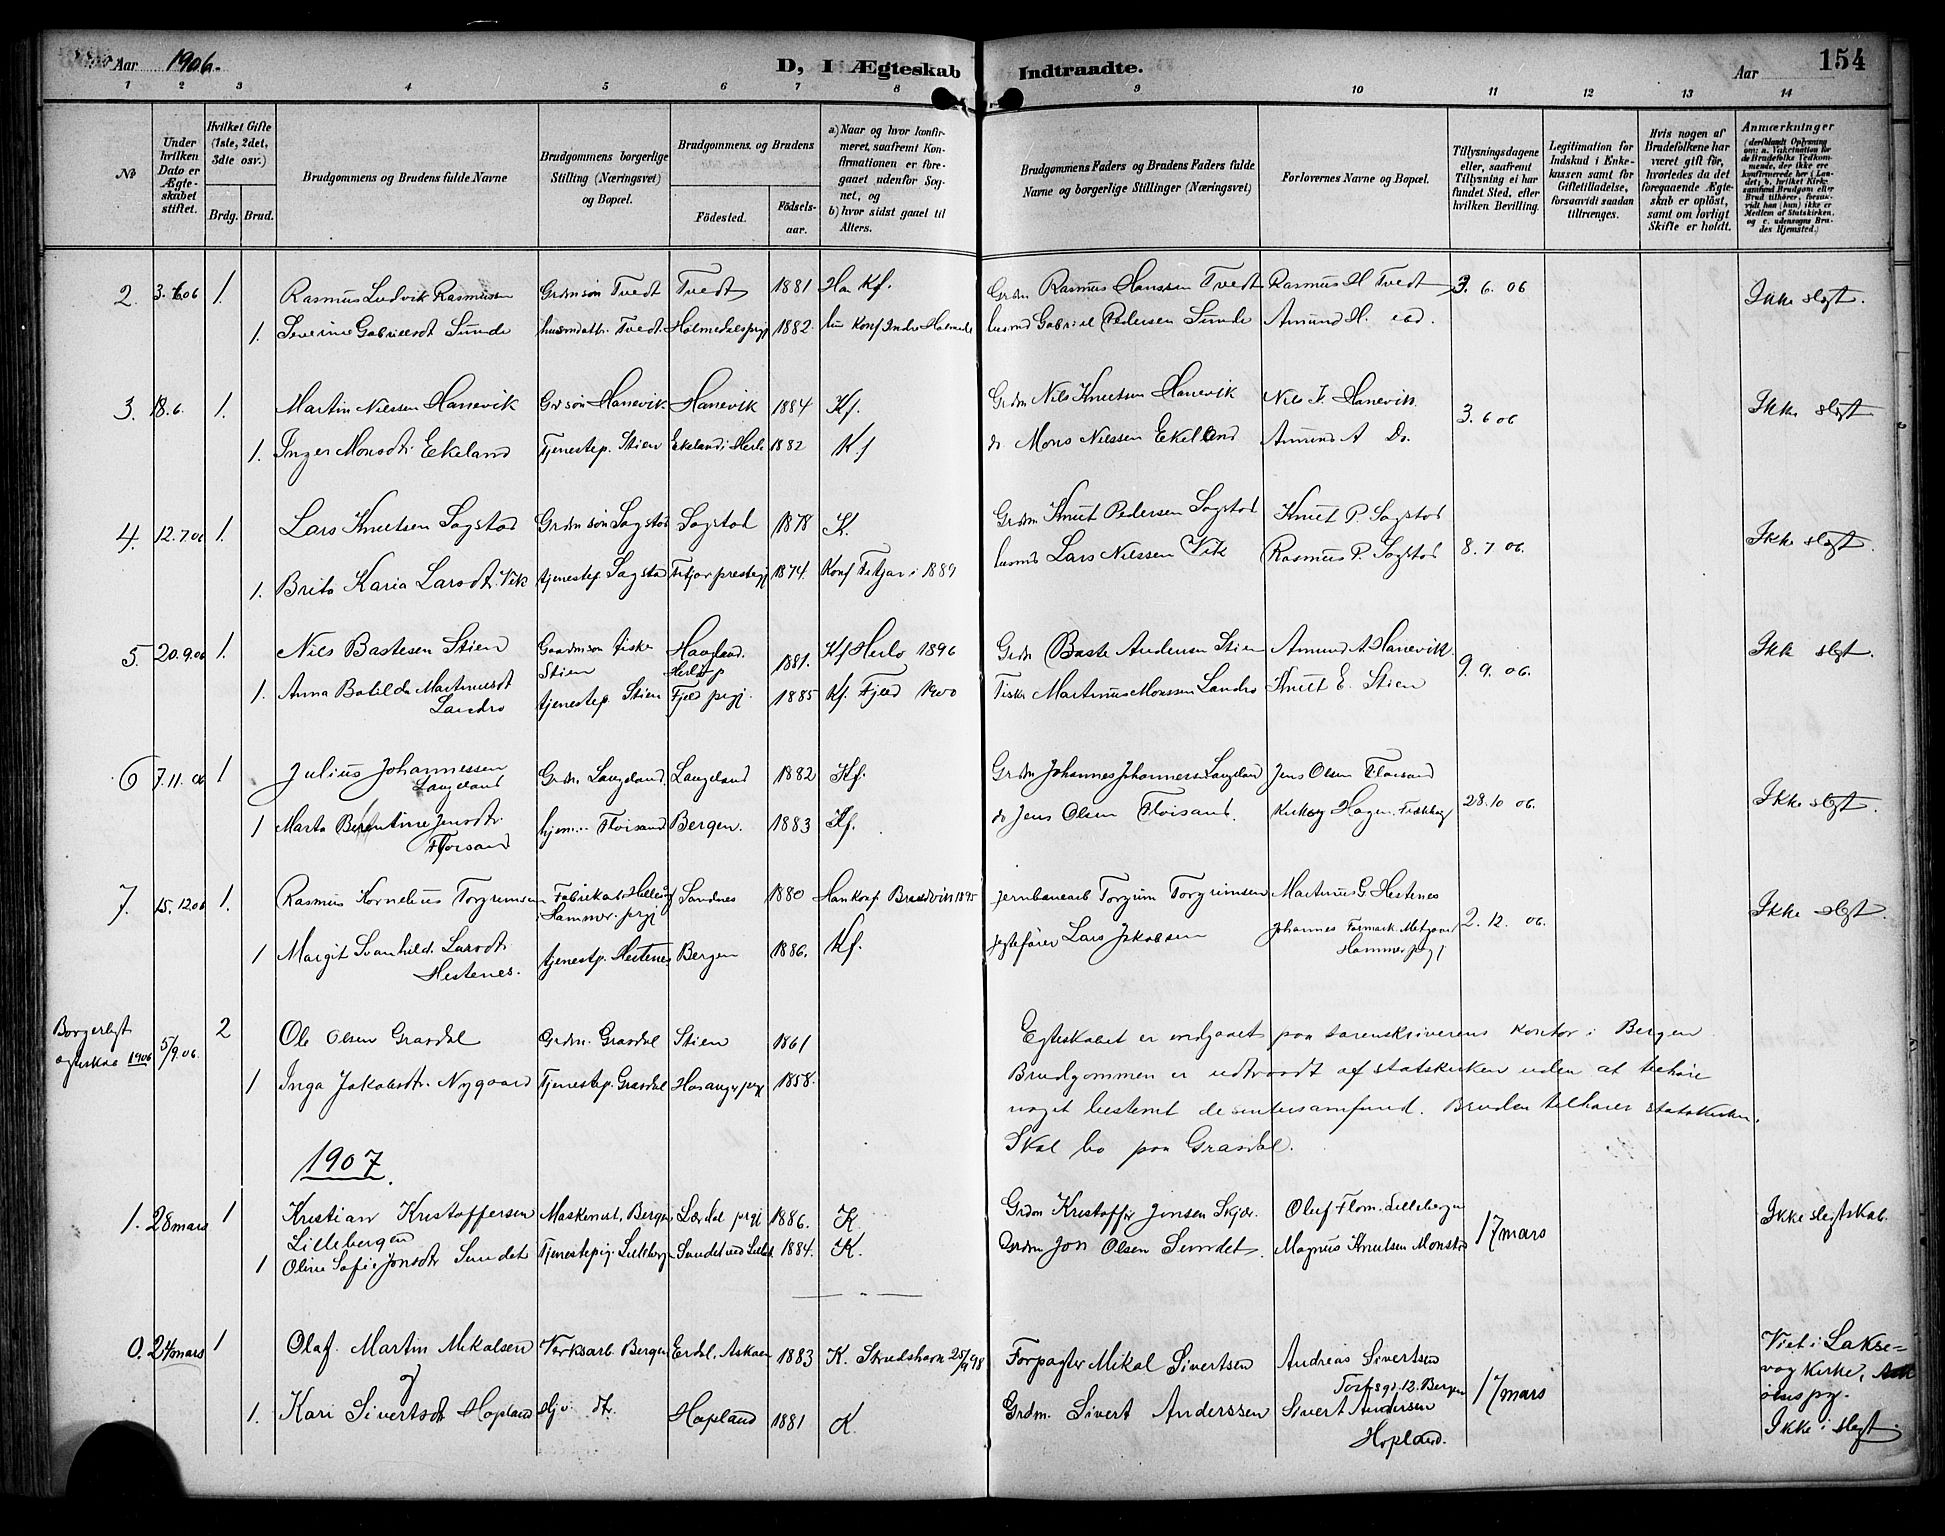 Aar 1906. D, I Ægteskab Indtraadte. Aar 154
1 2 3 4 5 6 7 8 9 10 11 12 13 14
No
Under hvilken Dato er Ægteskabet stiftet.
Hvilket Gifte (1ste, 2det, 3die osv.)
Brdg. Brud.
Brudgommens og Brudens fulde Navne
Brudgommens borgerlige Stilling (Næringsvei) og Bopæl.
Brudgommens og Brudens
Födested. Födselsaar.
a) Naar og hvor konfirmeret, saafremt Konfirmationen er foregaaet udenfor Sognet, og
b) hvor sidst gaaet til Alters.
Brudgommens Faders og Brudens Faders fulde Navne og borgerlige Stillinger (Næringsvei)
Forlovernes Navne og Bopæl.
Tillysningsdagene eller, saafremt Tillysning ei har fundet Sted, efter hvilken Bevilling.
Legitimation for Indskud i Enkekassen samt for Giftetilladelse, forsaavidt saadan tiltrænges.
Hvis nogen af Brudefolkene har været gift för, hvorledes da det foregaaende Ægteskab er oplöst, samt om lovligt Skifte er holdt.
Anmærkninger (deriblandt Oplysning om: a. Vakcination for de Brudefolks Vedkommende, der ikke ere konfirmerede her i Landet; b. hvilket Kirkesamfund Brudgom eller Brud tilhører, forsaavidt han (hun) ikke er Medlem af Statskirken, og c. udensogns Brudes Hjemsted.)
2. 3.6.06 1. Rasmus Ludvik Rasmussen Grdmsøn Tvedt Tvedt 1881 Han Kf. Grdm Rasmus Hanssen Tvedt Rasmus H Tvedt 3. 6. 06 Ikke slegt.
1. Severine Gabrielsdt Sunde husmdattr. Tvedt Holmedalsprgj 1882. Konf Indre Holmeda husmd Gabriel Pedersen Sunde Amund H. ibd.
3. 18.6. 1. Martin Nilssen Hanevik Grdsøn Hanevik Hanevik 1884 Kf. Grdm Nils Knutsen Hanevik Nils K. Hanevik 3. 6 06 Ikke slegt
1. Inger Monsdtr Ekeland Tjenestep. Stien Ekeland i Herlø 1882 K.f do Mons Nilssen Ekeland Amund A Do.
4. 12.7.06 1. Lars Knutsen Sagstad Grdmsøn Sagstad Sagstad 1878 K. Grdm Knut Pedersen Sagstad Knut P. Sagstad 8. 7 06. Ikke slegt.
1. Brita Karia Larsdtr. Vik tjenestep Sagstad Fitjar prestegj 1874. Konf Fitjar i 1889 husmd Lars Nilssen Vik Rasmus P. Sagstad
5. 20.9.06 1. Nils Bastesen Stien Gaardmsøn fisker Stien Haaland. Herlø p 1881. Kf Herlø 1896 Grdm Baste Andersen Stien Amund A Hanevik. 9. 9. 06. Ikke slegt.
1. Anna Botilda Martinusdt Landro tjenestep. Stien Fjel prgj. 1885 Kf. Fjeld 1900 Fisker Martinus Monssen Landro Knut E. Stien
6 7.11.06 1 Julius Johannessen Langeland Grdm. Langeland Langeland 1882 Kf. Grdm Johannes Johannessen Langeland Jens Olsen Floisand 28.10 06. Ikke slegt.
1 Marta Berentine Jensdtr. Floisand hjem Floisand Bergen. 1883 Kf. do Jens Olsen Floisand. Hagen.
7. 15.12.06 1. Rasmus Kornelius Torgrimsen Fabrikarb Hammer prgj Sandnes 1880 Han konf 1895 jernbanearb Torgrim Torgrimsen Martinus G. Hestenes 2. 12. 06. Ikke slegt.
1 Margit Svanhild Larsdtr Hestenes. tjenestp. Hestenes Bergen 1886. Kf. jegtefører Lars Jakobsen Johannes Hammer prgj
Borgerligt egteskab 1906 5/9.06. 2 Ole Olsen Grasdal Grdm. Grasdal Stien 1861 Egteskabet er indgaaet paa sorenskriverens kontor i Bergen.
1 Inga Jakobsdtr. Nygaard Tjenestep. Grasdal Hosanger prgj 1858. Brudgommen er udtraadt af statskirken uden at tilhøre
noget bestemt dissentersamfund. Bruden tilhører statskirken.
Skal bo paa Grasdal.
1907.
1. 28 mars 1 Kristian Kristoffersen Lillebergen Maskenist, Bergen Lærdal prgj 1886. K Grdm Kristoffer Jensen Oluf Flom. Lillebergen 17 mars Ikke slegtskab.
1 Oline Sofie Jonsdtr Sundet Tjenestepig. Lilleberg 1884. K. Grdm Jon Olsen Sundet. Magnus Knutsen Monstad
0. 24 mars 1 Olaf Martin Mikalsen Verksarb. Bergen Erdal, Askøen 1883 K. Strudshavn 25/9 98 Forpagter Mikal Sivertsen Andreas Sivertsen 12. Bergen 17 mars Viet i Laksevag Kirke, Ask øens pg. Ikke i slegt.
1. Kari Sivertsdt Hopland Hopland 1881 K. Grdm. Sivert Anderssen Sivert Andersen Hopland.